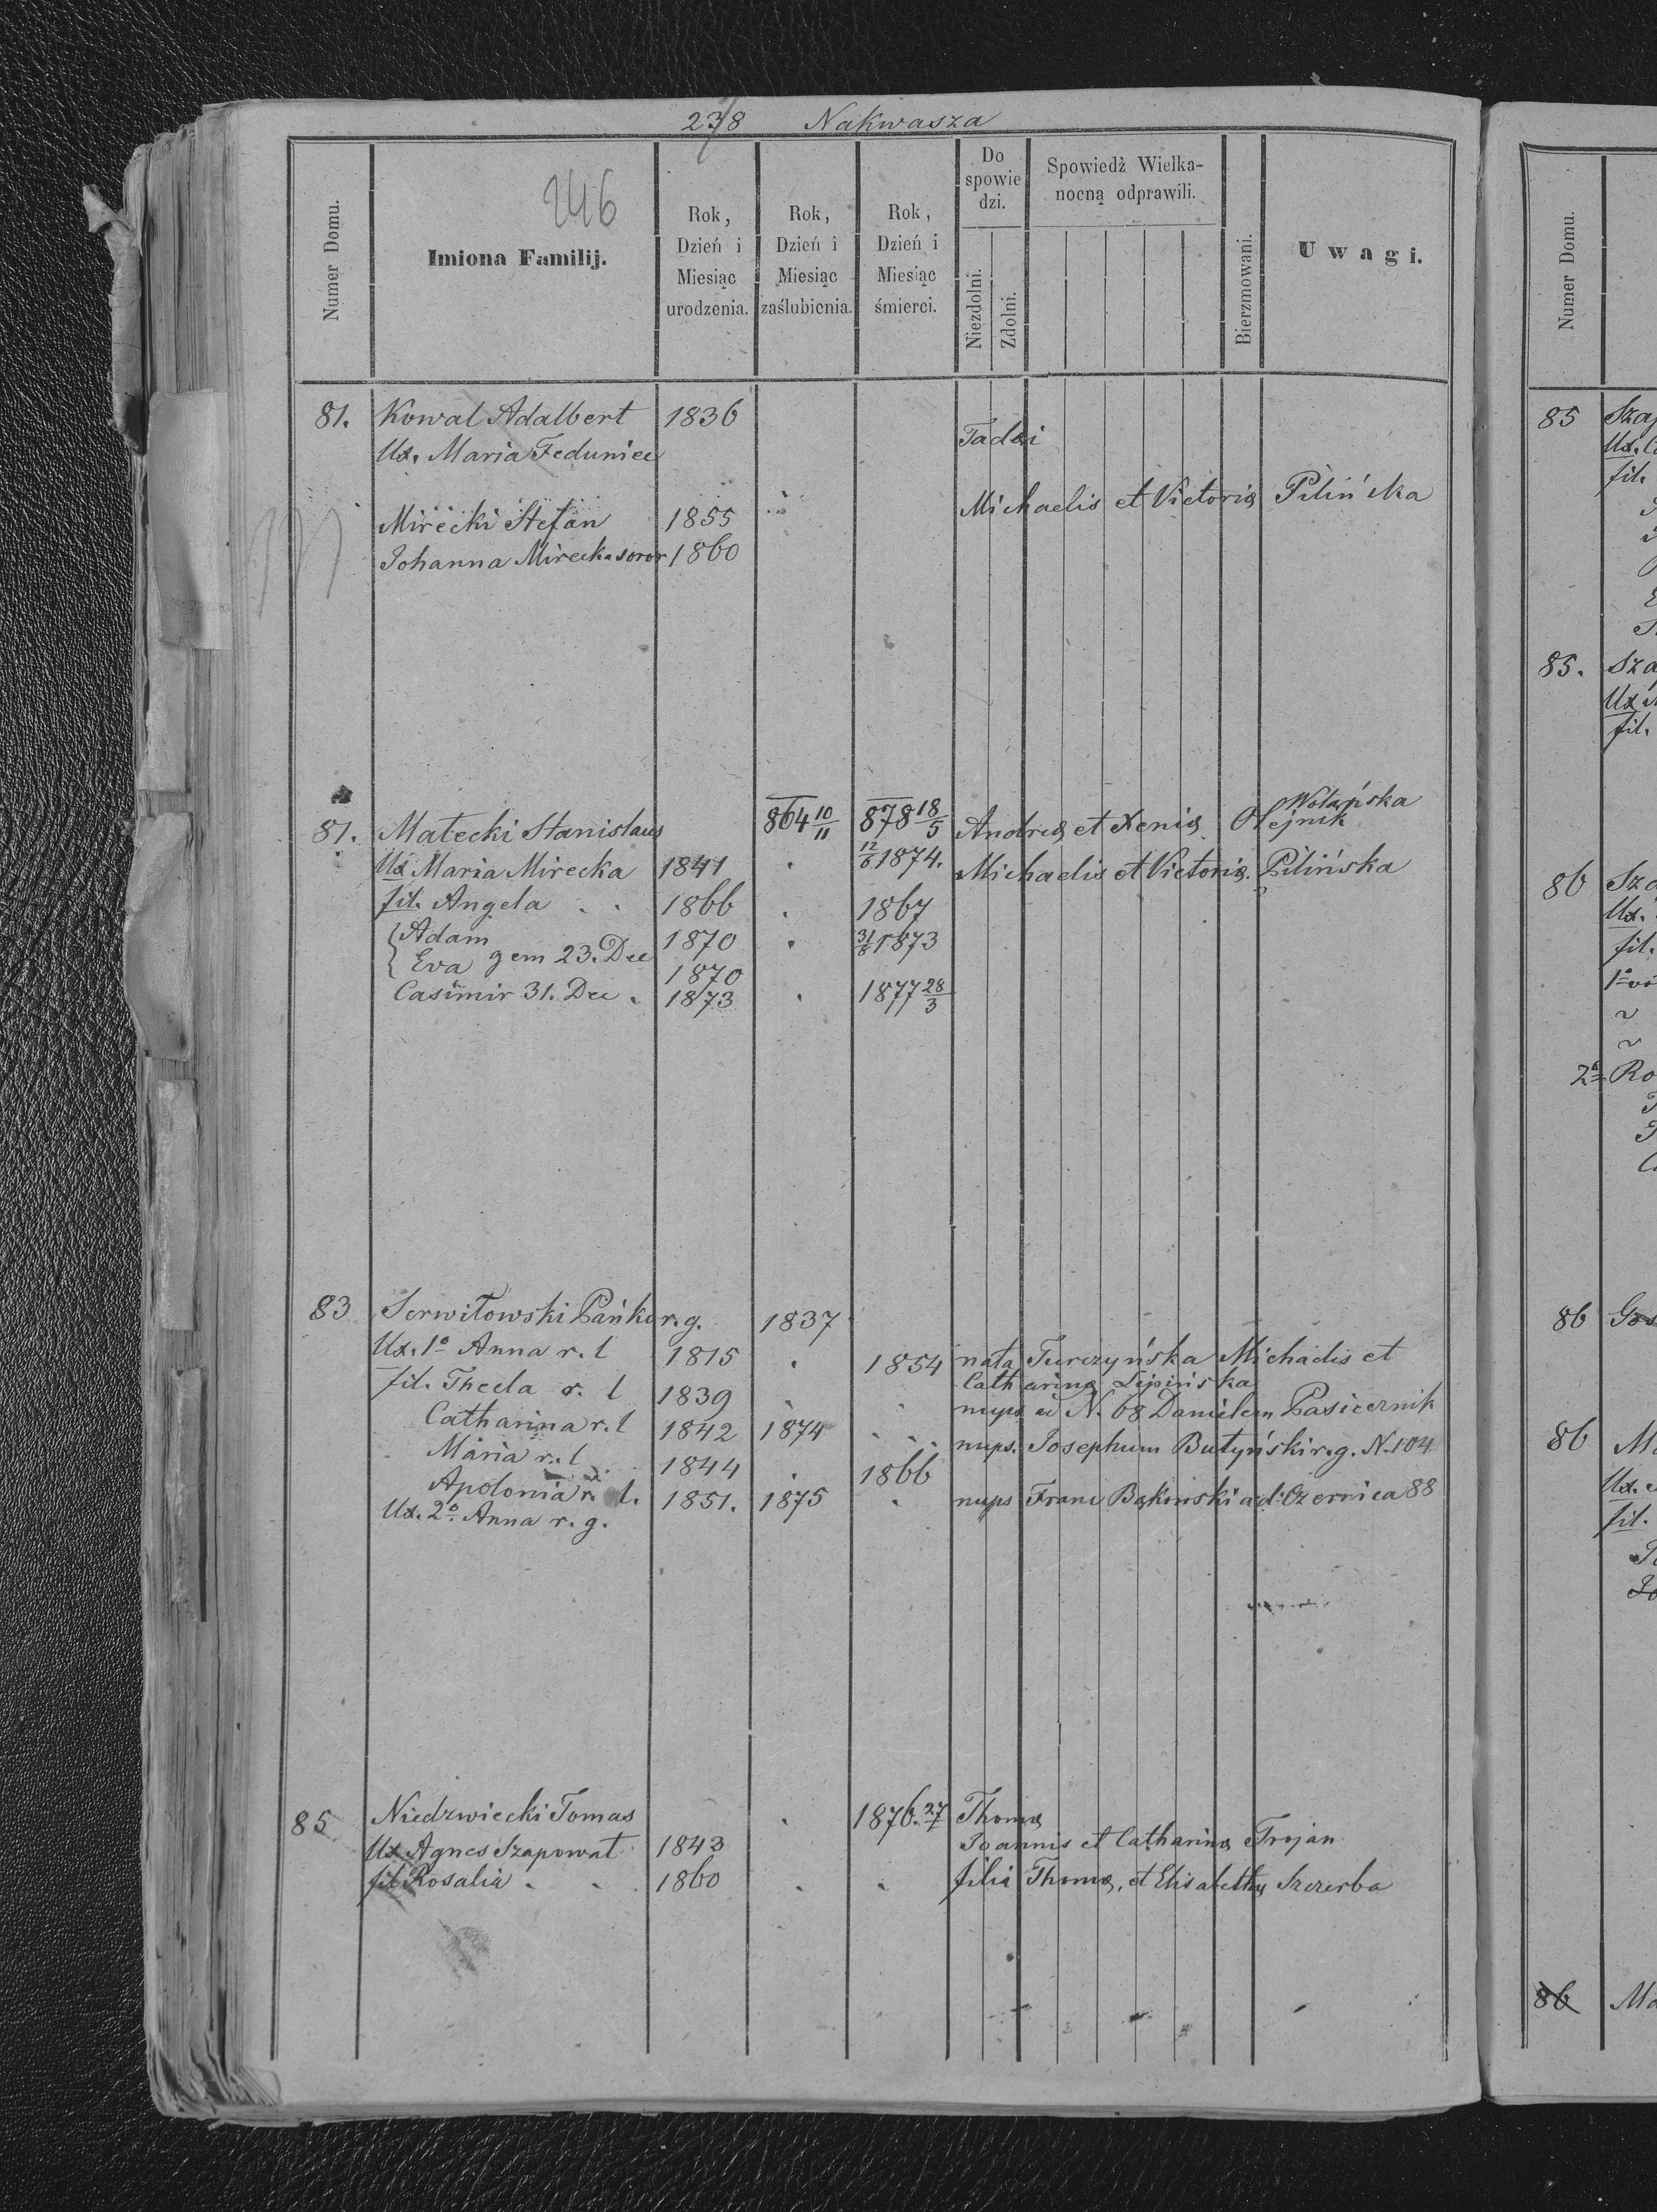 238 Nakwasza
246
Numer Domu.
Imiona Familij.
Rok, Dzień i Miesiąc urodzenia.
Rok, Dzień i Miesiąc zaślubienia.
Rok, Dzień i Miesiąc śmierci.
Do spowie dzi.
Niezdolni.
Zdolni.
Spowiedź Wielka-
nocną odprawili.
Bierzmowani.
Uwagi.
81. Kowal Adalbert 1836
Ux. Maria Feduniec Tadei
Mirecki Stefan 1855 Michaelis et Victoriæ Pilińska
Johanna Mirecka soror 1860
81. Małecki Stanislaus 864 10/11 878 18/5 Andreæ et Xeniæ Olejnik Wolańska
Ux Maria Mirecka 1841 12/6 1874. Michaelis et Victoriæ. Pilińska
fil. Angela 1866 1867
Adam 1870 31/8 1873
Eva gem 23. Dec 1870
Casimir 31. Dec. 1873 1877 28/3
83 Serwitowski Pańko r. g. 1837
Ux. 1o Anna r. l 1815 1854 nata Turczyńska Michaelis et
Catharinæ Lipińska
fil. Thecla r. l 1839 nups ad N. 68 Danielem Pasicernik
Catharina r. l 1842 1874 nups. Josephum Butyński r. g. N. 104
Maria r. l 1844 1866
Apolonia r. l. 1851. 1875 nups Franc Bąkowski ad Czernica 88
Ux. 2o Anna r. g.
85 Niedzwiecki Tomas 1876. 27/1 Thomæ
Ux Agnes Szapowat 1843 Joannis et Catharinæ Trojan
fil Rosalia 1860 filia Thomæ, et Elisabethæ Szczerba
Numer Domu.
85
Ux.
fil.
85. Sza
Ux
fil.
86 Sza
Ux.
fil.
1o vo
2o Ro
86 Gos
86 Ma
Ux.
fil.
86 Ma